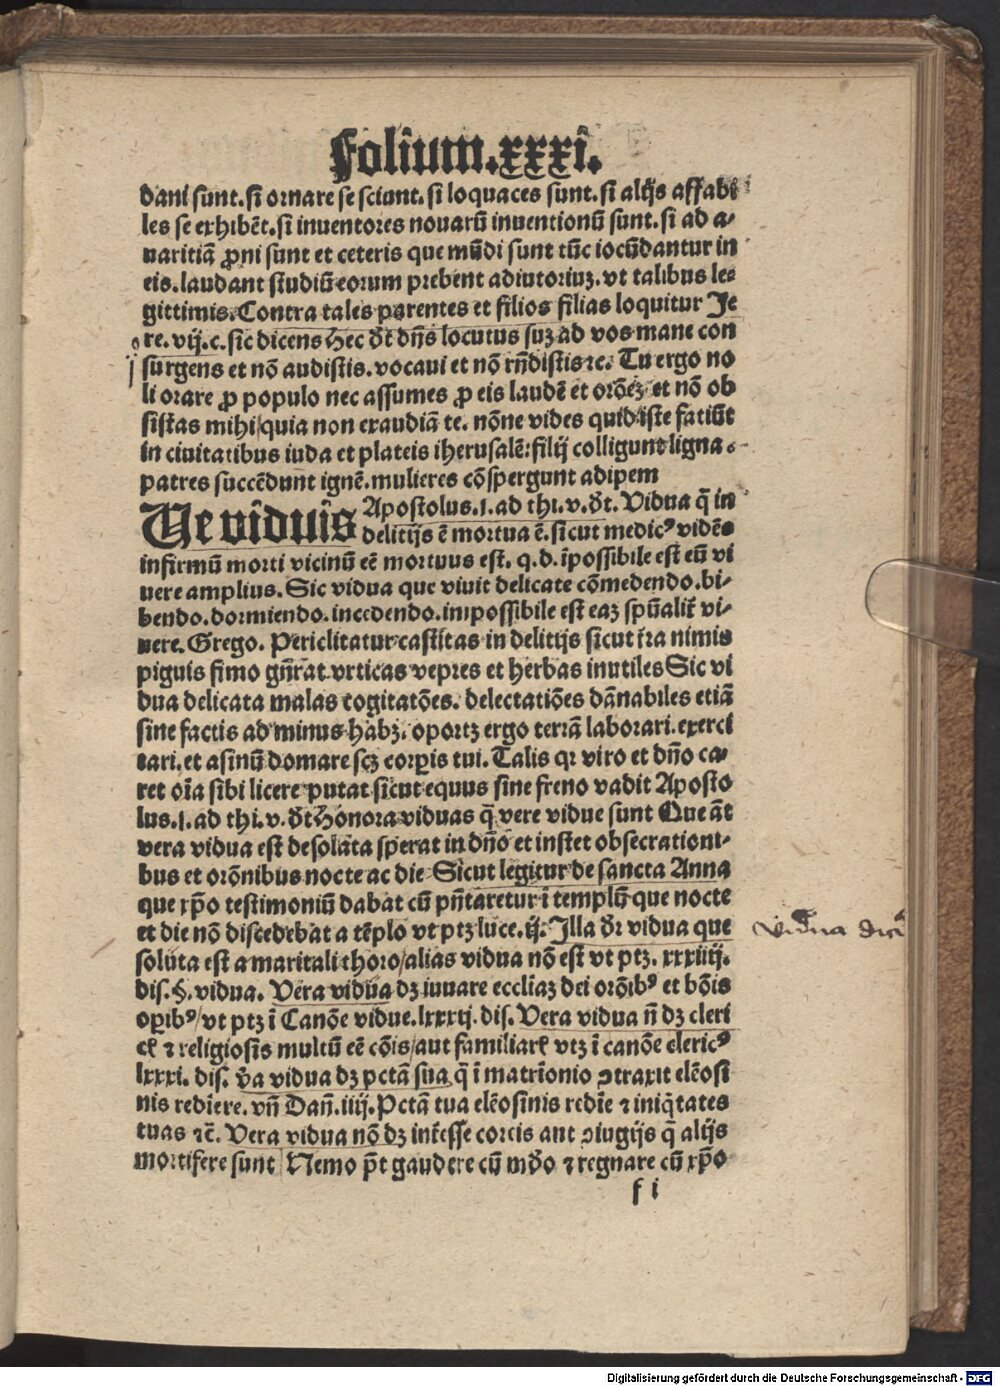 Folium.xxxi.
dani sunt.si ornare se sciunt.si loquaces sunt.si alijs affabi
les se exhibēt.si inuentores nouarū inuentionū sunt.si ad a⸗
uaritiā ꝓni sunt et ceteris que mūdi sunt tūc iocūdantur in
eis.laudant studiū eorum prebent adiutoriuꝫ.vt talibus le⸗
gittimis.Contra tales parentes et filios filias loquitur Je
re.vij.c.sic dicens Hec dt̄ dn̄s locutus suꝫ ad vos mane con
surgens et nō audistis.vocaui et nō rn̄distis ⁊c. Tu ergo no
li orare ꝓ populo nec assumes ꝓ eis laudē et orōeꝫ et nō ob
sistas mihi/quia non exaudiā te. nōne vides quid iste faciūt
in ciuitatibus iuda et plateis iherusalē:filij colligunt ligna.
patres succēdunt ignē.mulieres cōspergunt adipem
De viduis Apostolus.i.ad thi.v.dt̄. Vidua q̄ in
delitijs ē mortua ē.sicut medicꝰ vidēs
infirmū morti vicinū eē mortuus est. q.d.īpossibile est eū vi
uere amplius.Sic vidua que viuit delicate cōmedendo.bi⸗
bendo.dormiendo.incedendo.impossibile est eaꝫ spūalit̄ vi⸗
uere.Grego. Periclitatur castitas in delitijs sicut t̄ra nimis
piguis fimo gn̄rat vrticas vepres et herbas inutiles Sic vi
dua delicata malas cogitatōes. delectatiōes dānabiles etiā
sine factis ad minus habꝫ. oportꝫ ergo terrā laborari.exerci
tari.et asinū domare scꝫ corꝑis tui. Talis qꝛ viro et dn̄o ca⸗
ret oīa sibi licere putat sicut equus sine freno vadit Aposto
lus.i.ad thi.v.dt̄ Honora viduas q̄ vere vidue sunt Que āt
vera vidua est desolata sperat in dn̄o et instet obsecrationi⸗
bus et orōnibus nocte ac die Sicut legitur de sancta Anna
que xp̄o testimoniū dabat cū pn̄taretur ī templū que nocte
et die nō discedebat a tēplo vt ptꝫ luce.ij. Illa dr̄ vidua que
soluta est a maritali thoro/alias vidua nō est vt ptꝫ. xxxiiij.
dis.§.vidua. Vera vidua dꝫ iuuare eccliaꝫ dei orōibꝰ et bōis
oꝑibꝰ/vt ptꝫ ī Canōe vidue.lxxxij.dis. Vera vidua n̄ dꝫ cleri
cꝭ ⁊ religiosis multū eē cōis/aut familiarꝭ vtꝫ ī canōe clericꝰ
lxxxi. dis. v̄a vidua dꝫ pctā sua q̄ ī matrimonio ꝯtraxit elēosi
nis redimere. vn̄ Dan̄.iiij.Pctā tua elēosinis redīe ⁊ iniq̄tates
tuas ⁊c̄. Vera vidua nō dꝫ int̄esse coreis aut ꝯiugijs q̄ alijs
mortifere sunt Nemo p̄t gaudere cū mūdo ⁊ regnare cū xp̄o
f i
vidua dici
Digitalisierung gefördert durch die Deutsche Forschungsgemeinschaft - DFG